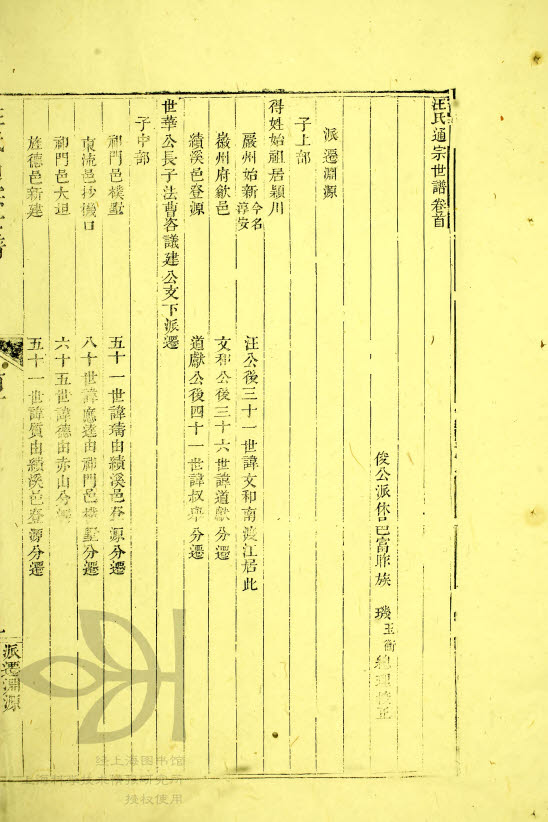 汪氏通宗世譜卷首
俊公派休邑富昨族 璣玉衡總理校正
派遷淵源
子上部
得姓始祖居潁川
嚴州始新今名淳安 汪公後三十一世諱文和南渡江居此
徽州府歙邑 文和公後三十六世諱道獻分遷
績溪邑登源 道獻公後四十一世諱叔舉分遷
世華公長子法曹咨議建公支下派遷
子中部
祁門邑樸墅 五十一世諱璹由績溪邑登源分遷
東流邑 八十世諱應達由祁門邑樸墅分遷
祁門邑大坦 六十五世諱德由赤山分遷
旌德邑新建 五十一世諱質由績溪邑登源分遷
派遷淵源
经上海图书馆
上海科学技术情报研究所
授权使用